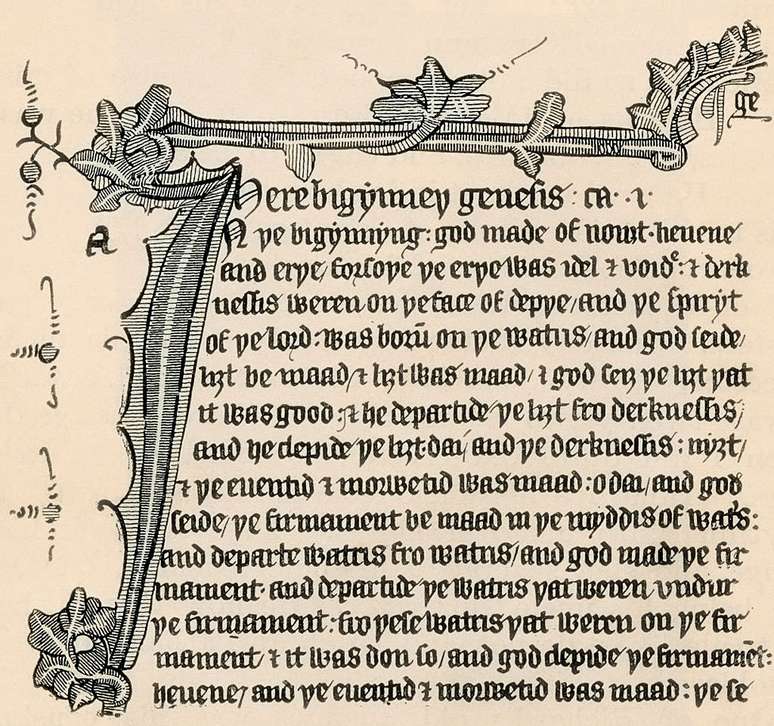 ge
Here bigẏnneþ genesis : ca · i ·
a
In þe bigẏnnẏng : god made of nouȝt · heuene
and erþe / forsoþe þe erþe was idel ⁊ voide : ⁊ derk
nessis weren on þe face of depþe / and þe spirẏt
of þe lord : was borū on þe watris / and god seide /
liȝt be maad / ⁊ liȝt was maad / ⁊ god seiȝ þe liȝt þat
it was good : ⁊ he departide þe liȝt fro derknessis /
and he clepide þe liȝt dai / and þe derknessis : nẏȝt /
⁊ þe euentid ⁊ morwetid was maad : o dai / and god
seide / þe firmament be maad in þe mẏddis of watˢ :
and departe watris fro watris / and god made þe fir
mament · and departide þe watris þat weren vndur
þe firmament : fro þese watris þat weren on þe fir
mament ⁊ it was don so / and god clepide þe firmamēt :
heuene / and þe euentid ⁊ morwetid was maad : þe se